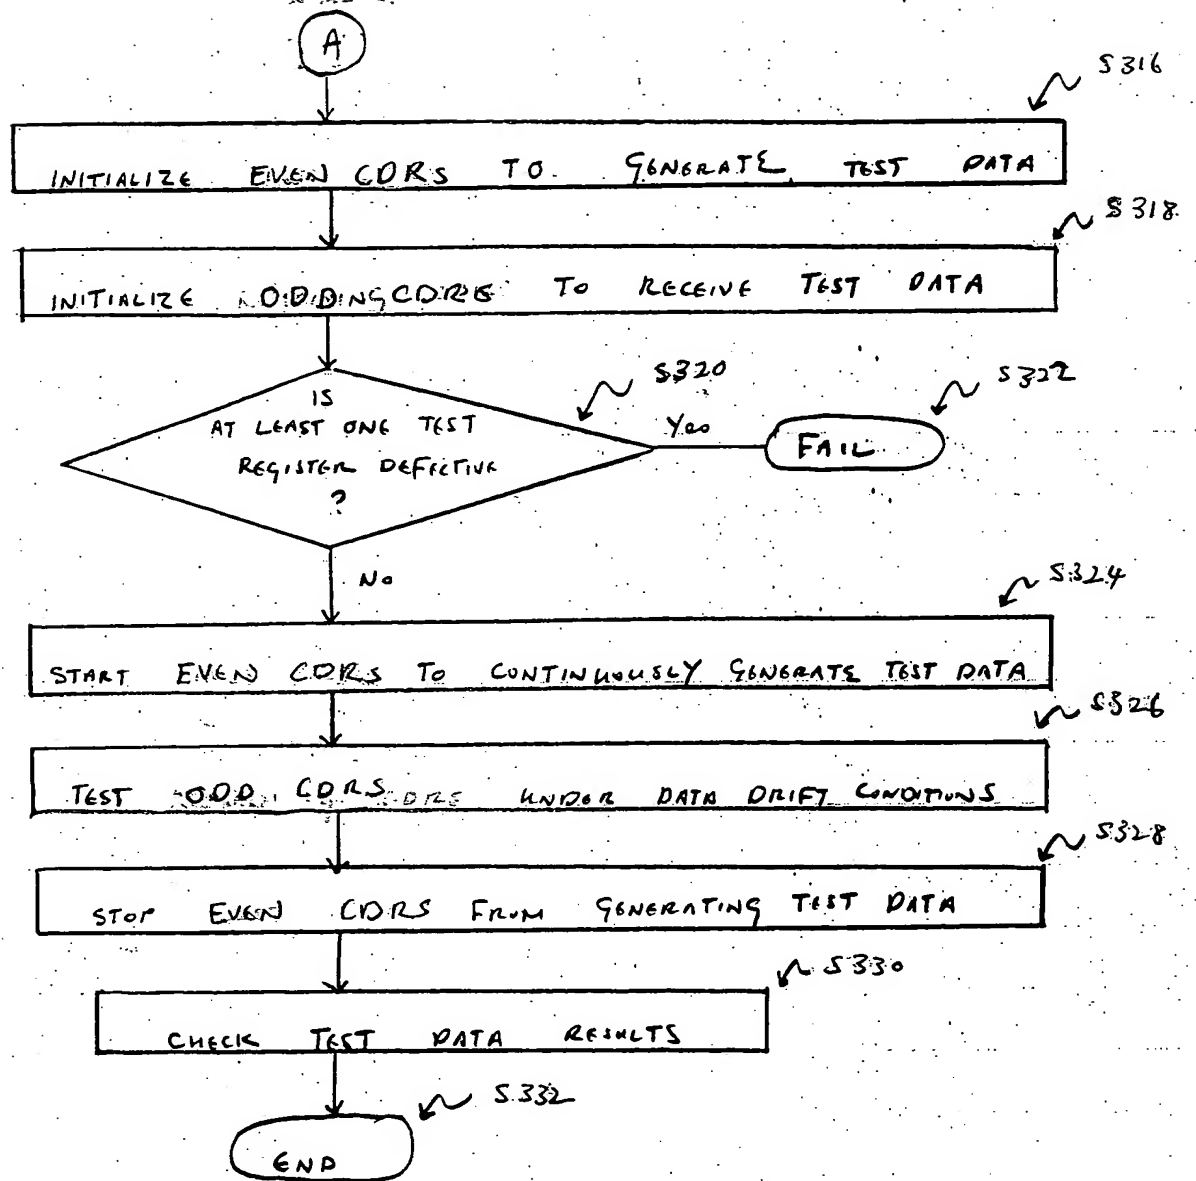 A
S316
INITIALIZE EVEN CDRS TO GENERATE TEST DATA
S318
INITIALIZE TO RECEIVE TEST DATA
S320
IS
AT LEAST ONE TEST
REGISTER DEFECTIVE
?
Yes
S322
FAIL
No
S324
START EVEN CDRS TO CONTINUOUSLY GENERATE TEST DATA
S326
TEST ODD CDRS UNDER DATA DRIFT CONDITIONS
S328
STOP EVEN CDRS FROM GENERATING TEST DATA
S330
CHECK TEST DATA RESULTS
S332
END